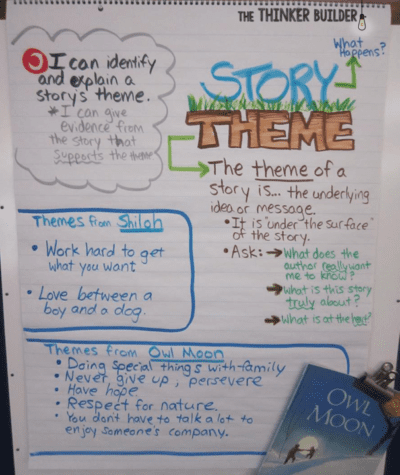 THE THINKER BUILDER
What
Happens?
I can identify
and explain a
story's theme.
* I can give
evidence from
the story that
supports the theme
STORY
THEME
The theme of a
story is... the underlying
idea or message.
• It is "under the surface"
of the story.
• Ask: → What does the
author really want
me to know?
→ What is this story
truly about?
→ What is at the heart?
Themes from Shiloh
• Work hard to get
what you want
• Love between a
boy and a dog.
Themes from Owl Moon
• Doing special things with family
• Never give up, persevere
• Have hope
• Respect for nature.
• You don't have to talk a lot to
enjoy someone's company.
OWL
MOON